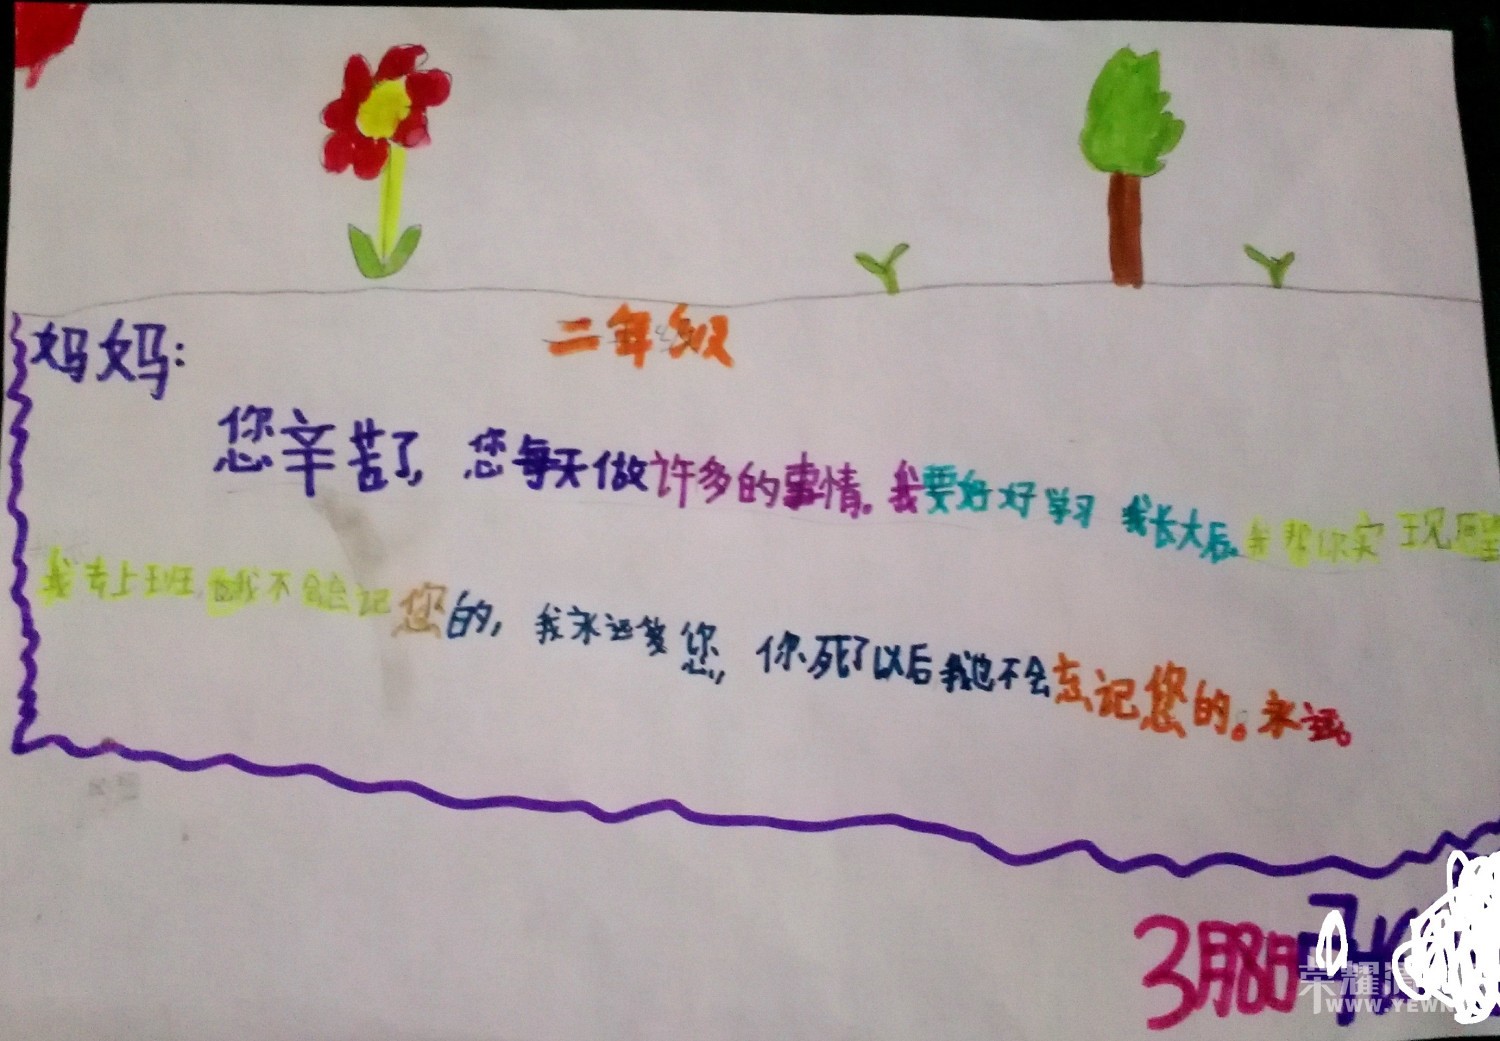 妈妈：
二年级
您辛苦了，您每天做许多的事情。我要好好学习 我长大后。我帮你实现愿望
我去上班，也我不会忘记您的，我永远爱您，你死了以后我也不会忘记您的。永远。
3月8日
荣耀
WWW.YEW